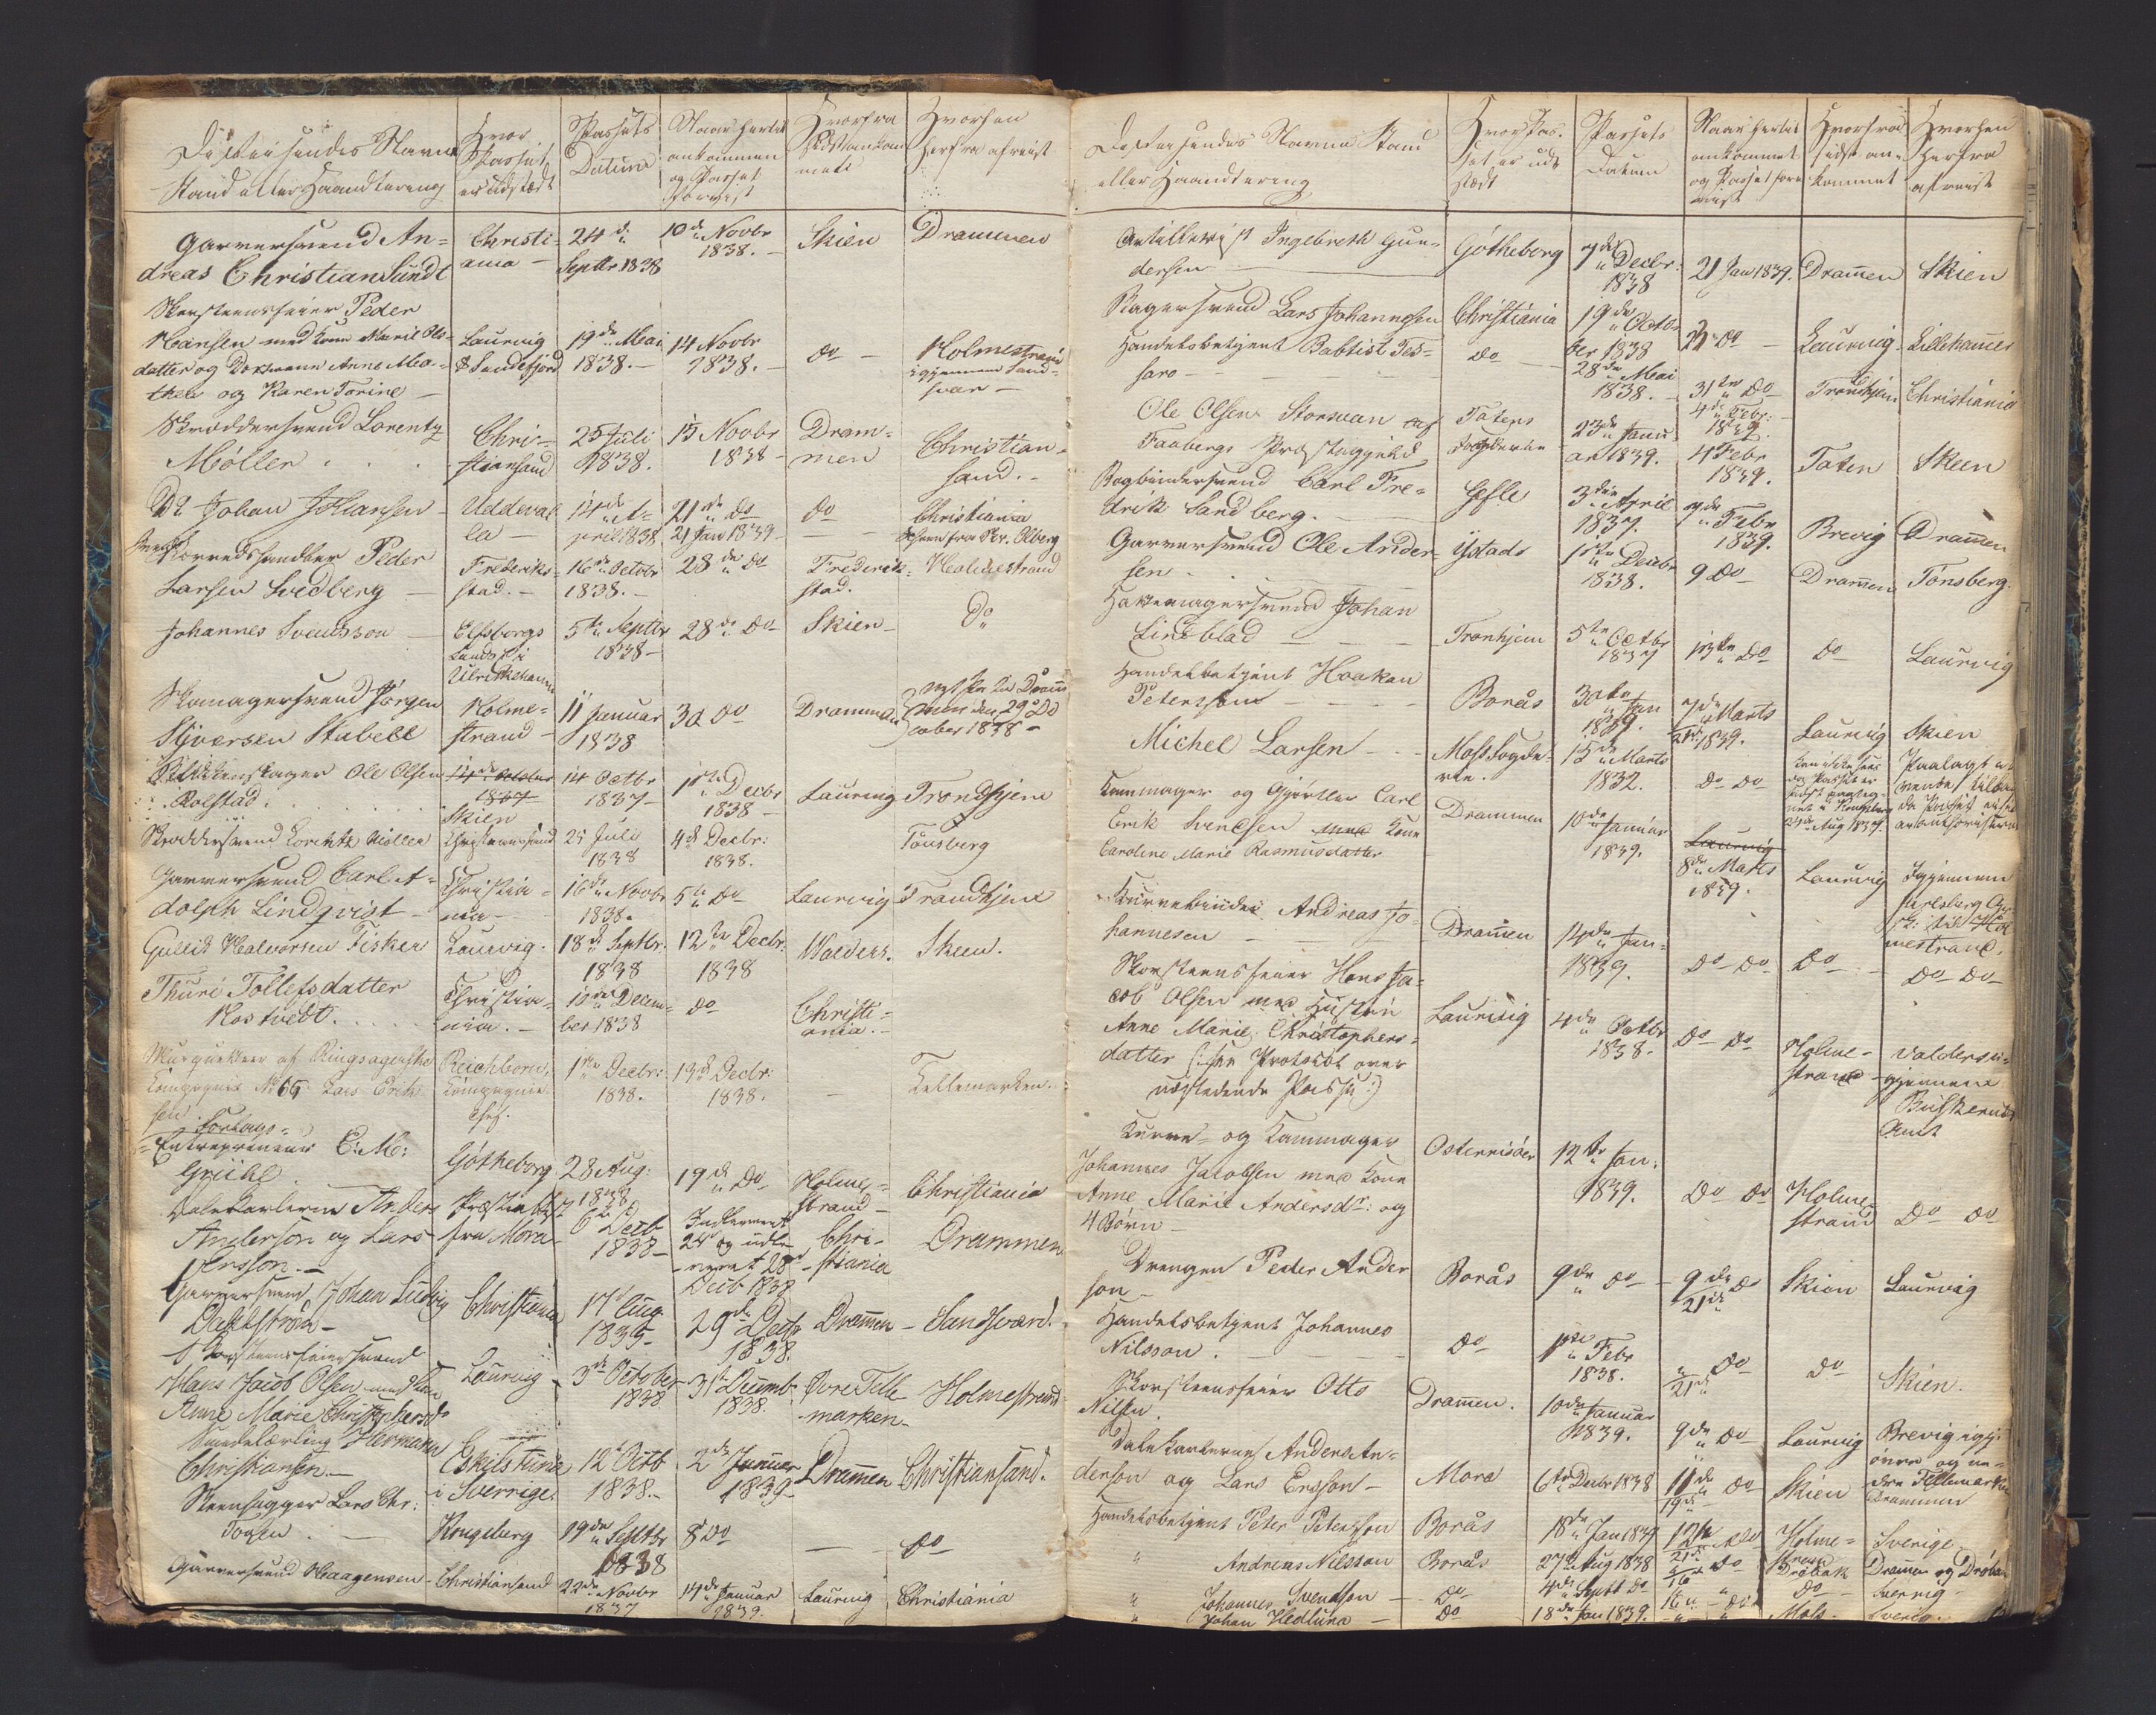 De Reisendes Navn
Stand eller Haandtering
Hvor
Passet
er udstædt
Passets
Datum
Naar hertil
ankommen
og Passet
forevist
Hvorfra
sidst ankom
met
Hvorhen
herfra afreist
Garversvend An=
dreas Christian Sundt
Christi=
ania -
24de
Septbr 1838
10de Novbr
1838. -
Skien
Drammen
Skorsteensfeier Peder
Hansen med Kone Marie Ols-
datter og Børnene Anne Ma-
thea og Karen Torine -
Laurvig
& Sandefjord
19de Mai
1838. -
14 Novbr
1838. -
do -
Holmestrand
igjennem Sand-
svær -
Skræddersvend Lorentz
Møller . . .
Chri=
stiansand
25 Juli
1838.
15 Novbr
1838 -
Dram=
men
Christian=
sand. -
Do Johan J Klansen -
Uddeval
la -
14de A-
pril 1838
21de do
21 Jan 1839 -
do
Christiania
Peder
Larsen Svedberg -
Frederiks-
stad. -
16de Octobr
1838. -
28de do
Frederik-
stad.
Holmestrand
Johannes Svendsson -
Elfsborgs
Lands i
Ulrikehamn
5te Septbr
1838 -
28de do -
Skien -
Do
Skomagersvend Jørgen
Syversen Stabell
Holme=
strand -
11 Januar
1838
30 do
Drammen
29de Oc
tober 1838 -
Ole Olsen
Rolstad.
14de October
1837
Skien
14 Octbr
1837 -
1ste Decbr
1838 -
Laurvig
Trondhjem
Skræddersvend Lorentz Møller
Christiansand
25 Juli
1838
4de Decbr:
1838.
Tønsberg
Garversvend Carl A-
dolph Lindqvist -
Christia-
nia -
16de Novbr
1838.
5te do
Laurvig
Trondhjem
Gullid Halvorsen Fisker
Laurvig.
18de Septbr.
1838
12te Decbr:
1838
Walders.
Skien.
Thuri Tollefsdatter
Rostvedt. . . . .
Christia-
nia. -
10de Decem-
ber 1838
do
Christi-
ania. -
Musqueteer af Ringsagerske
Kompagnie No 66 Lars Erik
sen.
Reichborn,
Kompagnie
Chef.
1ste Decbr:
1838.
13de Decbr:
1838.
-
Tellemarken.
Forlags=
Entrepreneur C: M:
Griebel
Götheborg
28 Aug:
1838
19de do
Holme-
strand -
Christiania
Dalekarlerne Anders
Anderson og Lars
Ersson. -
fra Mora -
6te Decb
1838 -
Indleveret
24 og udle-
veret 28de
Decb 1838
Chri-
stiania
Drammen
Garversvend Johan Ludvig
Dahlstrøm -
Christiania
17de Aug
1835 -
29de Decbr
1838.
Drammen -
Sandsværd.
Skorsteensfeiersvend
Hans Jacob Olsen med Kone
Anne Marie Christophersd
Laurvig
3de October
1838
31te Decemb
1838.
Øvre Telle
marken -
Holmestrand
Smedelærling Hermann
Christiansen. -
Eskilstuna
i Sverrige.
12te Octb
1838. -
2de Januar
1839 -
Drammen
Christiansand.
Steenhugger Lars Chr:
Kongsberg
19de Septbr
1838
8de do
-
do
Garversvend Haagensen -
Christiansand
22de Novbr
1837
14de Januar
1839.
Laurvig
Christiania
De Reisendes Navne Stand
eller Haandtering
Hvor Pas-
set er ud-
stædt
Passets
Datum
Naar hertil
ankommet
og Passet fore
viist
Hvorfra
sidst an-
kommet
Hvorhen
herfra
afreist
Artillerist Ingebreth Gun-
dersen -
Götheborg
7de Decbr:
1838
21 Jan 1839.
Drammen
Skien
Bagersvend Lars Johannesen
Christiania
19de Octo-
ber 1838
23 do -
Laurvig -
Lillehammer
Handelsbetjent Babtist Tes-
saro -
do -
28de Mai
1838. -
31te do
Trondhjem
Christiania
Ole Olsen Storsveen af
Faabergs Præstegjeld
Totens
Fogderie
23de Janu
ar 1839.
4de Febr:
1839.
4 Febr
1839.
Toten
Skien
Bogbindersvend Carl Fre=
drik Sandberg. -
Gefle
3die April
1837.
7de Febr
1839.
Brevig
Drammen
Garversvend Ole Ander-
sen -
Ystads
1ste Decbr
1838.
9 do -
Drammen
Tønsberg.
Hattemagersvend Johan
Lindblad -
Tronhjem
5te Octbr
1837
13de do
do
Laurvig
Handelbetjent Haakan
Petersson -
Borås
30te Jan
1839.
7de Marts
1839.
Laurvig
Skien
Michel Larsen -
Moss Fogde-
rie.
15de Marts
1832.
do do
Kan ikke sees
da Passet er
sidst paateg-
net i Kongsberg
Aug 1837.
Paalagt at
vende tilbage
da Passet ei er
Kammager og Gjørtler Carl
Erik Svendsen med Kone
Caroline Marie Rasmusdatter
Drammen
10de Januar
1839.
Laurvig
8de Marts
1839.
Laurvig
Igjennem
Jarlsberg Gr
sk: til Hol
mestrand.
Kurvebinder Andreas Jo-
hannesen -
Drammen
14de Jan-
1839.
do do
do -
do - do -
Skorsteensfeier Hans Ja-
cob Olsen med Hustru
Anne Marie Christophers-
datter (: see Protocol over
udstedede Passe :)
Laurvig
4de Octbr
1838.
do do
Holme-
strand
Valders i-
gjennem
Buskeruds
Amt
Kurve- og Kammager
Johannes Jacobsen med Kone
Anne Marie Andersdr: og
4 Børn -
Osterrisöer
12te Jan.
1839.
do do
Holme
strand
do do
Drengen Peder Ander
son -
Borås
9de do -
9de do
21de
Skien
Laurvig
Handelsbetjent Johannes
Nilsson. -
do -
1ste Febr
1838.
do
21de
do
Skien.
Skorsteensfeier Otto
Nilsen.
Drammen.
10de Januar
1839.
9de do -
Laurvig
Brevig igj:
øvre og ne-
dre Tellemarken
Dalekarlerne Anders An-
derson og Lars Ersson -
Mora
6te Decbr 1838
11de do
19de -
Skien
Drammen
Handelsbetjent Peter Petersson
Borås
18de Jan 1839
12te do
21de
Holme-
strand
Sverige
" Andreas Nilsson
Borås
27de Aug 1838
do
16
Drøbak
Drammen og Drøbak
" Johannes Svendson -
do -
4de Septb do
16 " do
do -
Sverrig -
" Johan Hedlund -
do
18de Jan 1839.
- " - "
Moss -
Sverig.